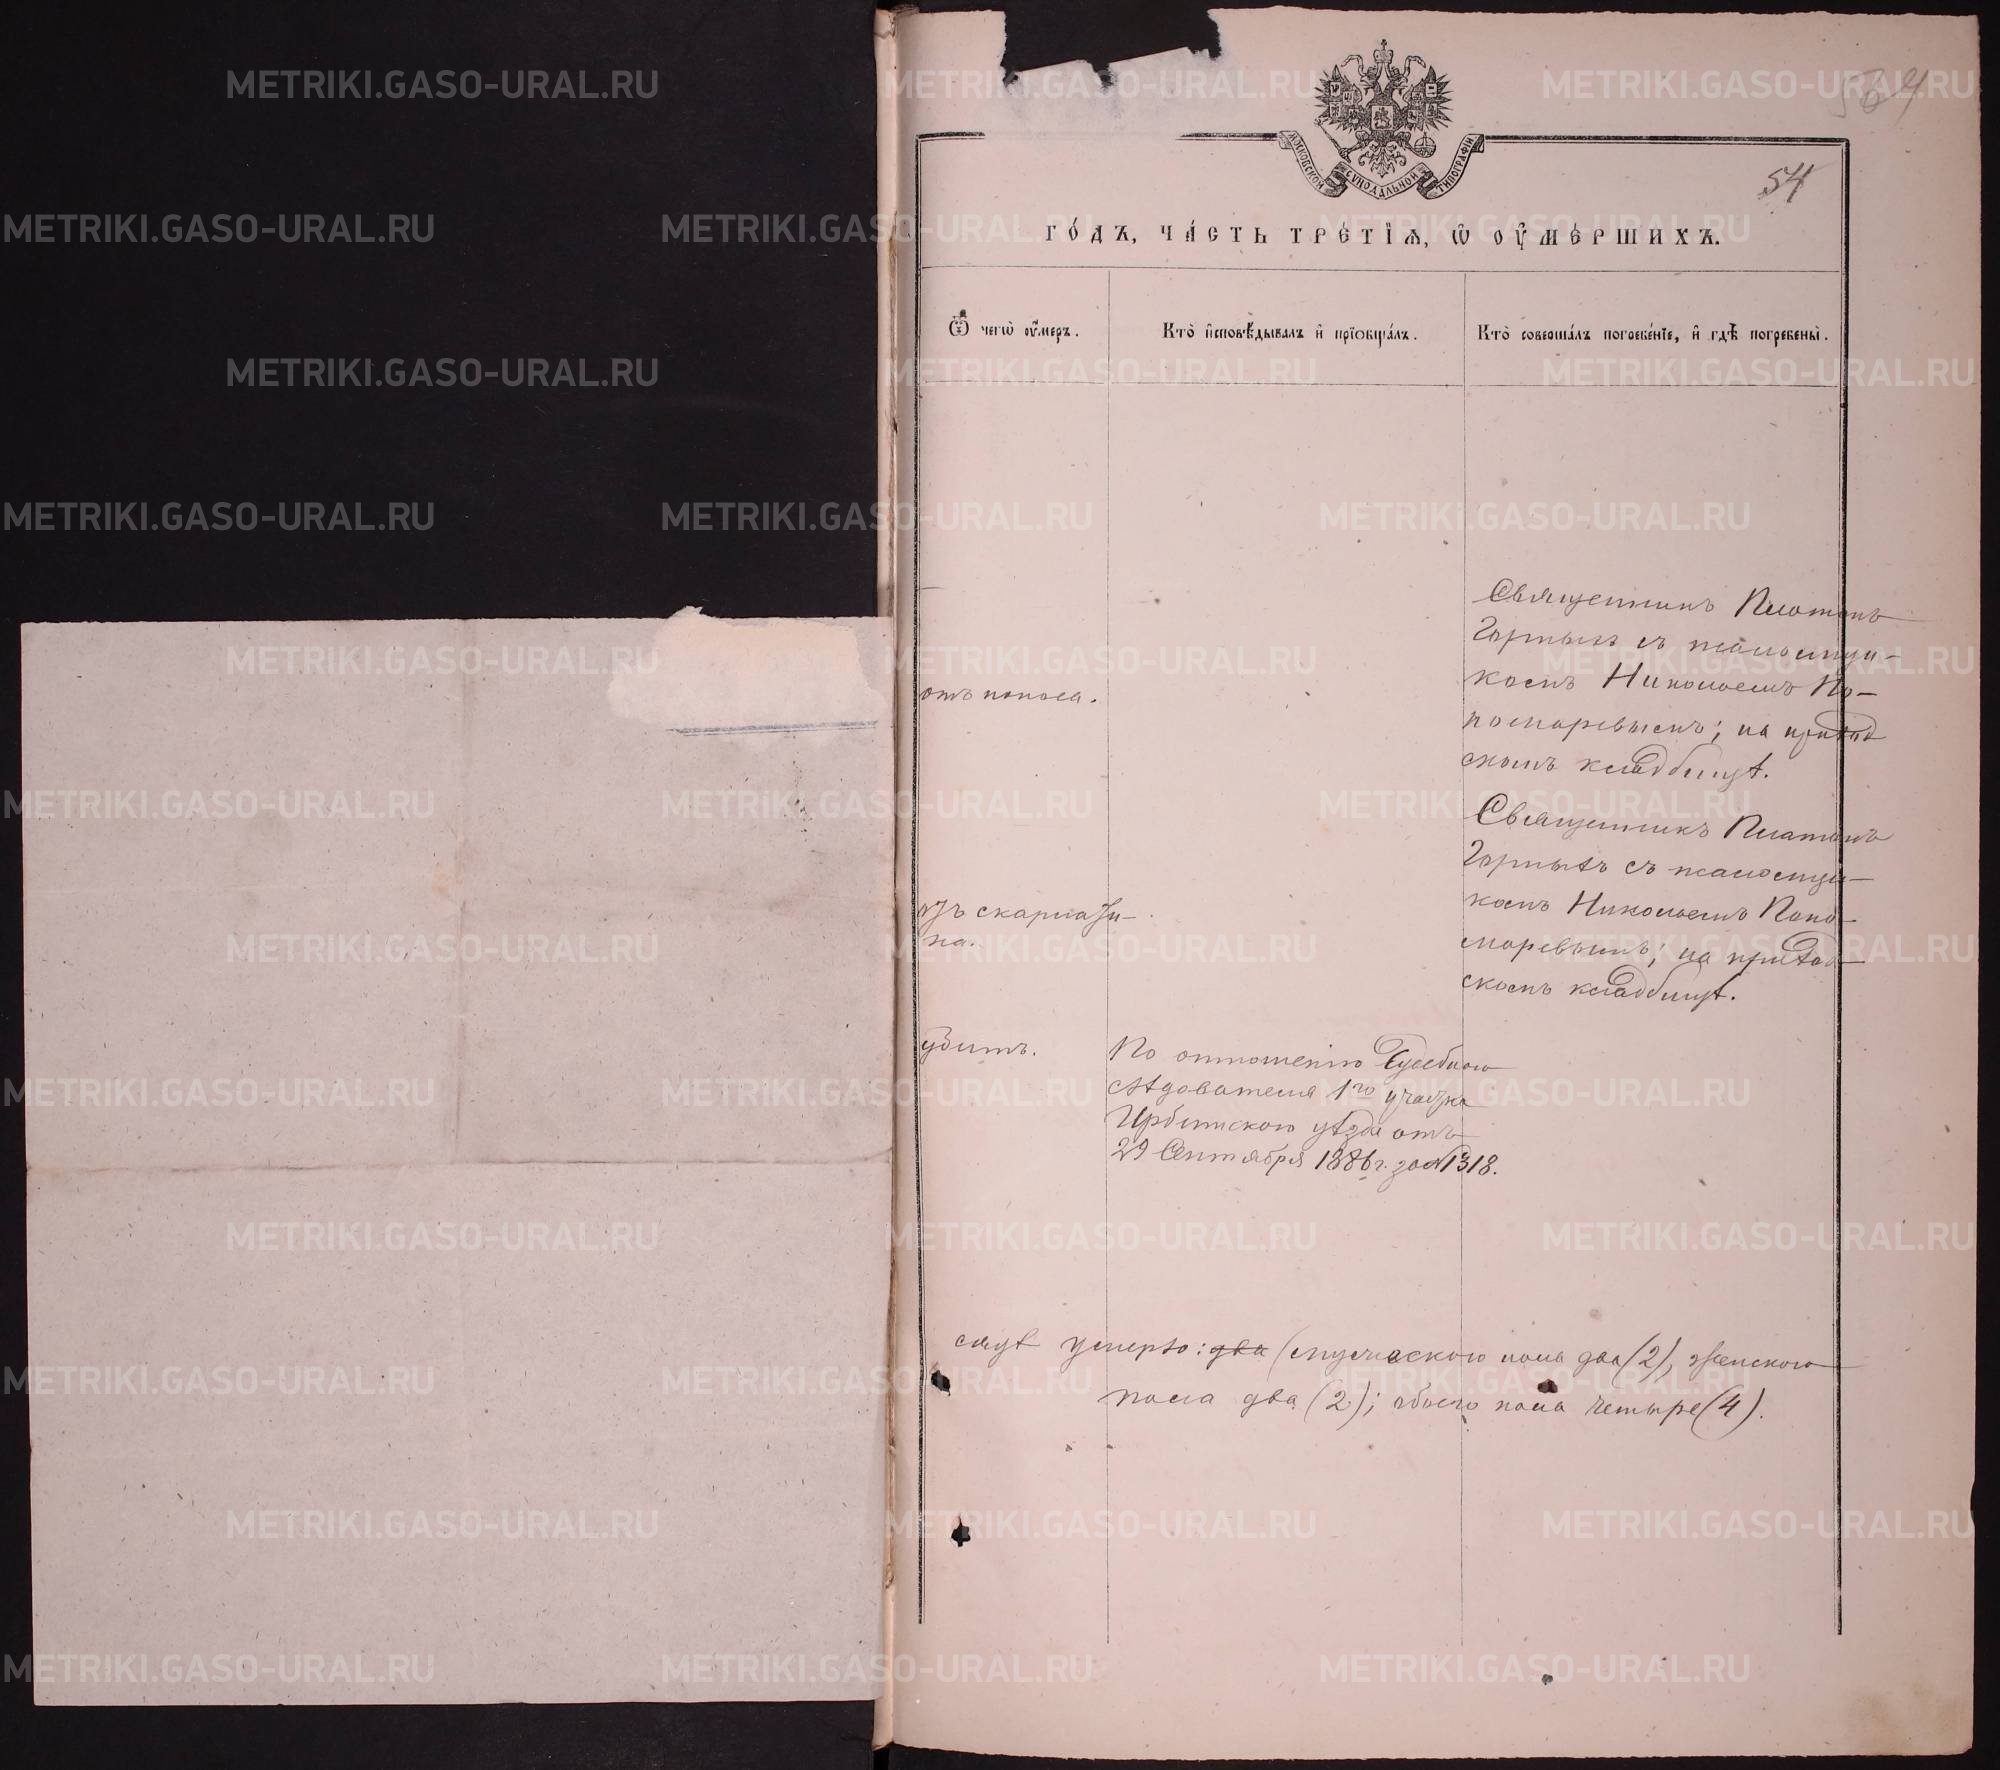 569
54
МОСКОВСКОЙ СѴНОДАЛЬНОЙ ТИПОГРАФІИ
ГО́ДЪ, ЧА́СТЬ ТРЕ́ТІѦ, Ѽ ОУ҆МЕ́РШИХЪ.
Ѿ чегѡ̀ оу҆́меръ.
Кто̀ и҆сповѣ́дывалъ и҆ прїѡбща́лъ.
Кто̀ соверша́лъ погребе́нїе, и҆ гдѣ̀ погребены̀.
Священникъ Платонъ
Горныхъ съ псаломщи-
комъ Николаемъ По-
номаревымъ; на приход
скомъ кладбищѣ.
отъ поноса.
Священникъ Платонъ
Горныхъ съ псаломщи-
комъ Николаемъ Поно-
маревымъ; на приход-
скомъ кладбищѣ.
скарлати-
на.
убитъ.
По отношенію Судебнаго
слѣдователя 1го участка
Ирбитскаго уѣзда отъ
29 Сентября 1886г. за №1318.
умерло: два (мужескаго пола два (2), женскаго
пола два (2); обоего пола четыре (4).
METRIKI.GASO-URAL.RU